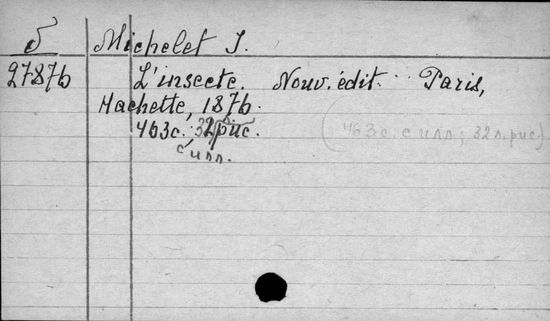 Б Michelet J.
27876 L'insecte. Nouv. édit. Paris,
Hachette, 1876.
463с. 32 рис. (463с. с илл; 32 л. рис)
с илл.